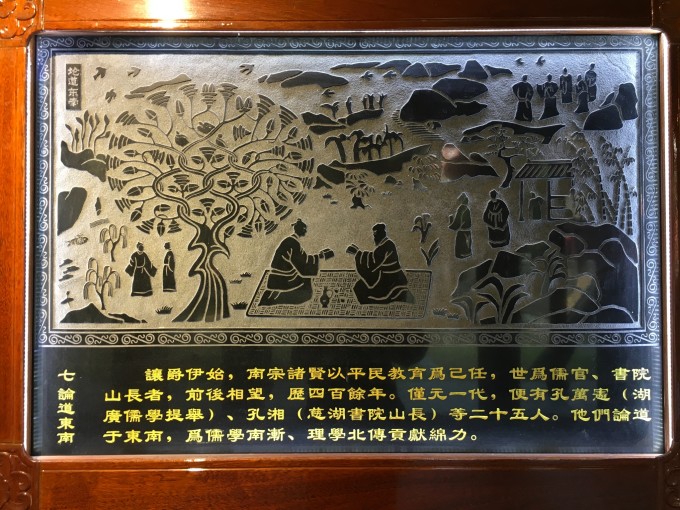 七 論道東南
讓爵伊始，南宗諸賢以平民教育爲己任，世爲儒官、書院
山長者，前後相望，歷四百餘年。僅元一代，便有孔萬憲（湖
廣儒學提舉）、孔湘（慈湖書院山長）等二十五人。他們論道
于東南，爲儒學南漸、理學北傳貢獻綿力。